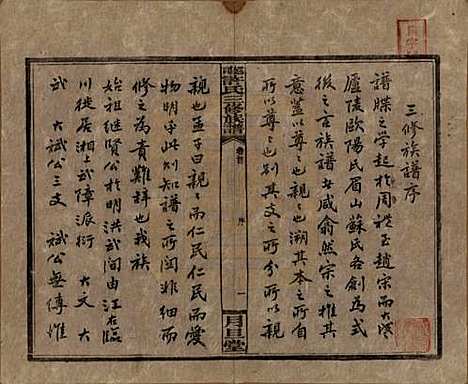 三修族譜序
譜牒之學起於周禮至趙宗而大盛
廬陵歐陽氏眉山蘇氏各創為式
後之言族譜者咸俞然宗之推其
意蓋以尊之也親之也溯其本之所自
所以尊之也别其支之所分所以親
許氏三修族譜
卷首
序
一
月旦堂
親也孟子曰親親而仁民仁民而愛
物明乎此則知譜之所關非細而
修之為貴難辭也我族
始祖繼賢公於明洪武間由江右臨
川徙居湘上武障派衍 大文 大
武 大斌公三支 斌公無傳惟